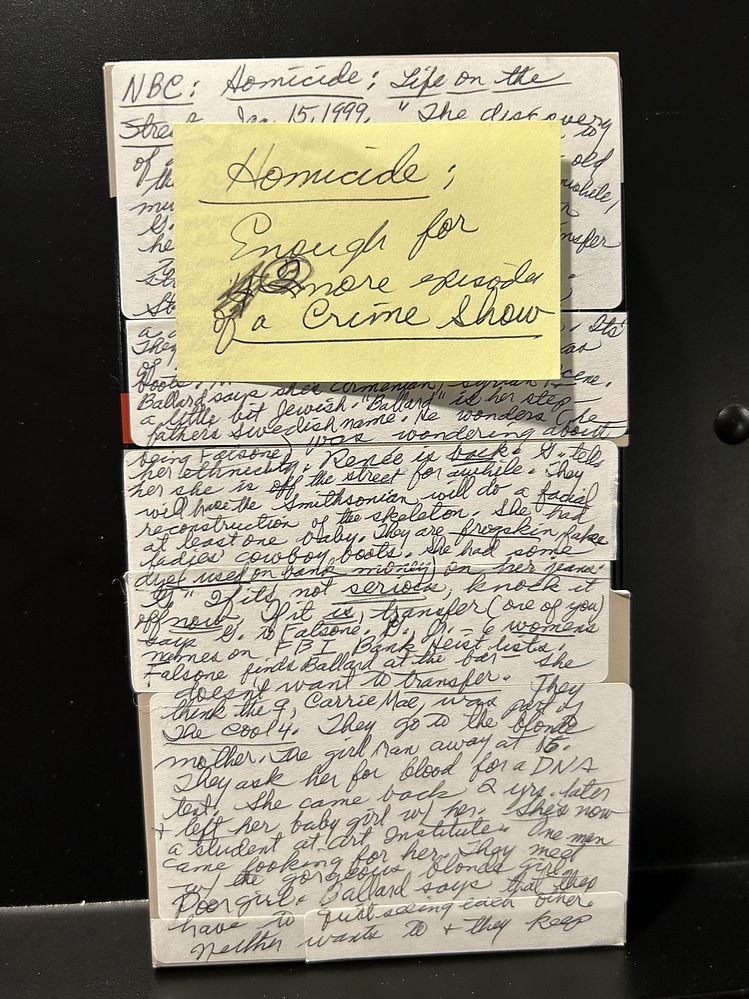 NBC: Homicide: Life on the
Street Jan. 15, 1999. "The discovery
of
to
old
mu
he
St
Homicide:
Enough for
2 more episodes
of a Crime Show
a
Its
They
of
boots.
Ballard says she's Armenian, Syrian +
a little bit Jewish. "Ballard" is her step-
fathers Swedish name. He wonders (he
being Falsone) was wondering about
her ethnicity. Renee is back. G. tells
her she is off the street for awhile. They
will have the Smithsonian will do a facial
reconstruction of the skeleton. She had
at least one baby. They are frogskin fake
ladies cowboy boots. She had some
dye (used on bank money) on her jeans.
G. "If its not serious, knock it
off now. If it is, transfer (one of you)
says G. to Falsone. 6 womens
names on FBI Bank Heist lists.
Falsone finds Ballard at the bar - she
doesn't want to transfer. They
think the Carrie Mae, was part of
The Cool 4. They go to the blonde
mother. The girl ran away at 15.
They ask her for blood for a DNA
test. She came back 2 yrs. later
+ left her baby girl w/ her. She's now
a student at Art Institute. One man
came looking for her. They meet
w/ the gorgeous blonde girl.
Poor girl. Ballard says that they
have to quit seeing each other.
Neither wants to + they keep